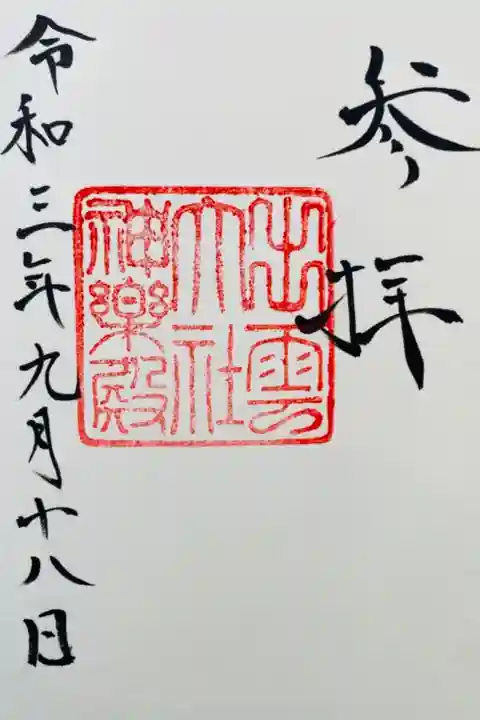 参拝
出雲
大社
神楽殿
令和三年九月十八日